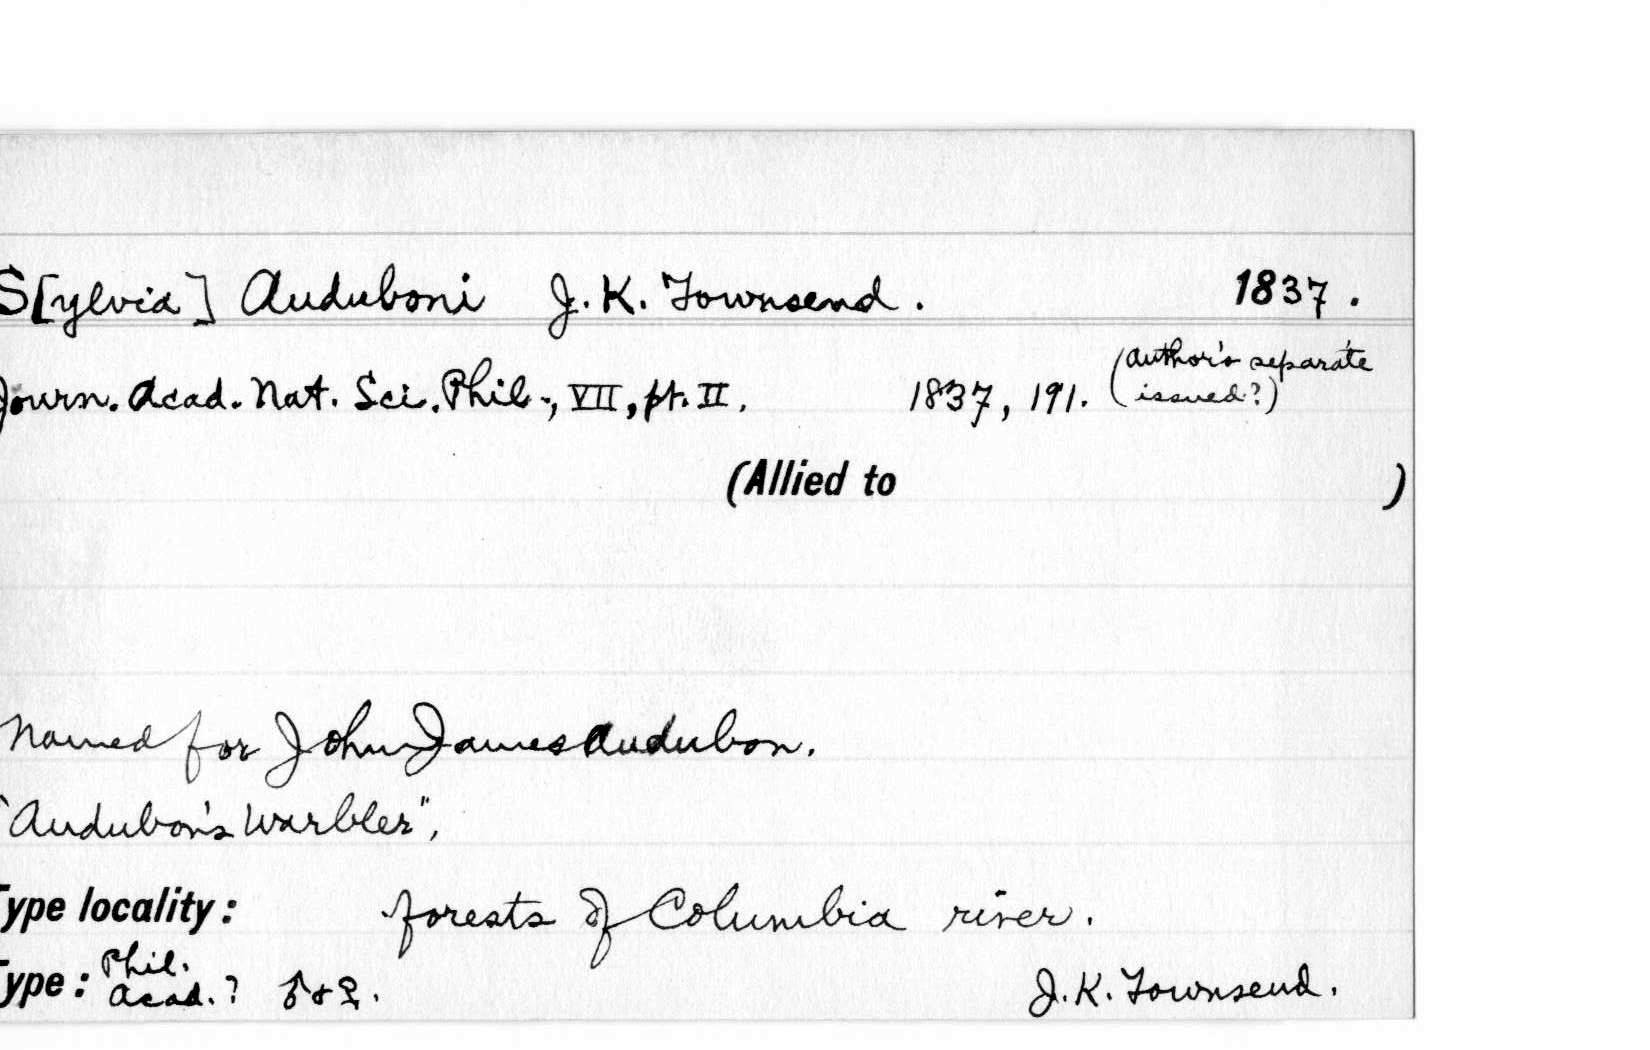 S[ylvia] Auduboni J. K. Townsend. 1837.
Journ. Acad. Nat. Sci. Phil., VII, pt. II. 1837, 191. (author's separate
issued?)
(Allied to )
Named for John James Audubon.
"Audubon's Warbler",
Type locality: forests of Columbia river.
Type: Phil. Acad.? ♂ & ♀. J. K. Townsend.